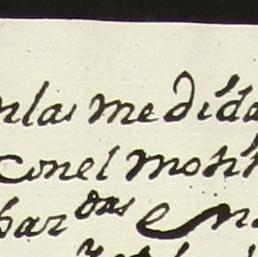 nlas medida
conel moti
bar das en